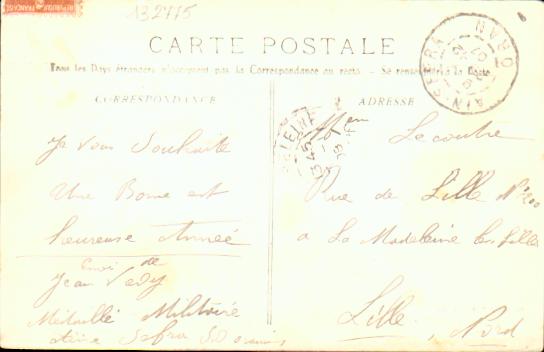 132775
RÉPUBLIQUE FRANÇAISE
CARTE POSTALE
Tous les Pays étrangers n'acceptent pas la Correspondance au recto. — Se renseigner à la Poste
CORRESPONDANCE
ADRESSE
AIN-SEFRA
ORAN
Je vous Souhaite
Une Bonne est
heureuse Année
Envoi de
Jean
Médaillé Militaire
Sefra
Lecoutre
Rue de Lille N° 200
a La Madeleine les Lille
Lille, Nord